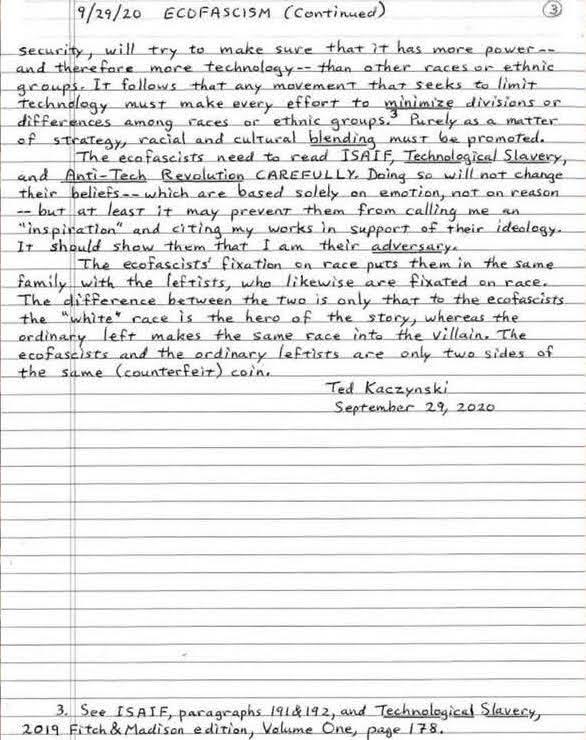 9/29/20 ECOFASCISM (Continued) 3
security, will try to make sure that it has more power--
and therefore more technology-- than other races or ethnic
groups. It follows that any movement that seeks to limit
technology must make every effort to minimize divisions or
differences among races or ethnic groups.3 Purely as a matter
of strategy, racial and cultural blending must be promoted.
The ecofascists need to read ISAIF, Technological Slavery,
and Anti-Tech Revolution CAREFULLY. Doing so will not change
their beliefs-- which are based solely on emotion, not on reason
-- but at least it may prevent them from calling me an
"inspiration" and citing my works in support of their ideology.
It should show them that I am their adversary.
The ecofascists' fixation on race puts them in the same
family with the leftists, who likewise are fixated on race.
The difference between the two is only that to the ecofascists
the "white" race is the hero of the story, whereas the
ordinary left makes the same race into the villain. The
ecofascists and the ordinary leftists are only two sides of
the same (counterfeit) coin.
Ted Kaczynski
September 29, 2020
3. See ISAIF, paragraphs 191&192, and Technological Slavery,
2019 Fitch & Madison edition, Volume One, page 178.